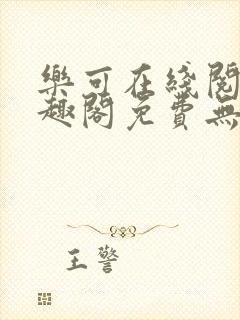 樂可在綫閱
趣閣免費無
王警